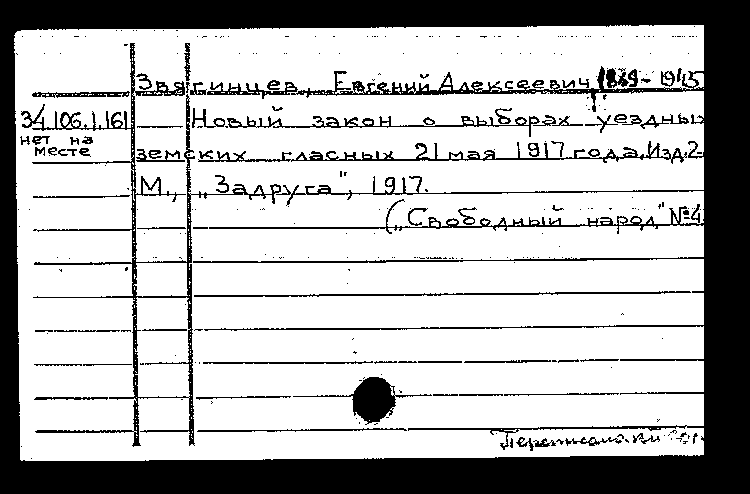 Звягинцев, Евгений Алексеевич 1869-1945
34.106.1.161 Новый закон о выборах уездных
нет на
месте
земских гласных 21 мая 1917 года. Изд. 2-
М., „Задруга", 1917.
(„Свободный народ" №4